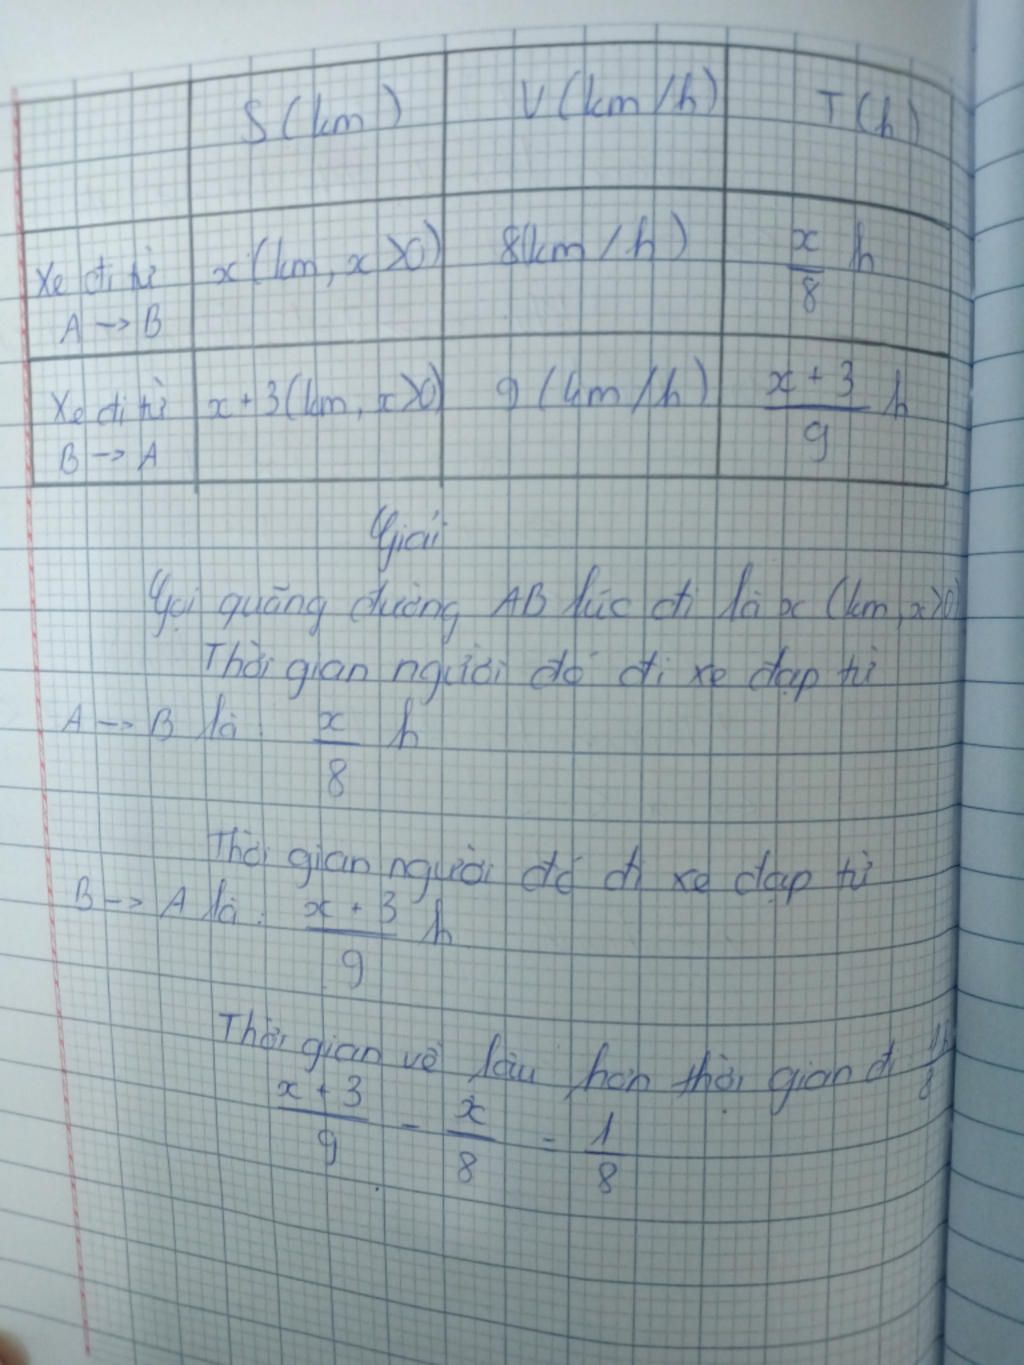 S (km) V (km/h) T (h)
Xe đi từ A → B x (km, x > 0) 8(km/h) x/8 h
Xe đi từ B → A x + 3 (km, x > 0) 9 (km/h) (x + 3)/9 h
Giải
Gọi quãng đường AB lúc đi là x (km, x > 0)
Thời gian người đó đi xe đạp từ
A → B là : x/8 h
Thời gian người đó đi xe đạp từ
B → A là : (x + 3)/9 h
Thời gian về lâu hơn thời gian đi 1/8 h
(x + 3)/9 - x/8 = 1/8